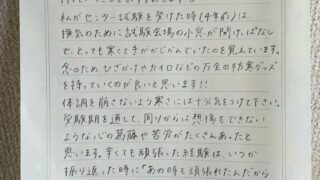 私がセンター試験を受けた時(4年前)は、
換気のために試験会場の小窓が開けっぱなし
で、とっても寒くて手がかじかんでいたのを覚えています。
念のため、ひざかけやカイロなどの万全の防寒グッズ
を持っていくのが良いと思います!!
体調を崩さないよう寒さには十分気をつけて下さい。
受験期を通して、周りからは想像もできない
ような心の葛藤や苦労がたくさんあったと
思います。辛くても頑張った経験は、いつか
振り返った時に「あの時も頑張れたんだから